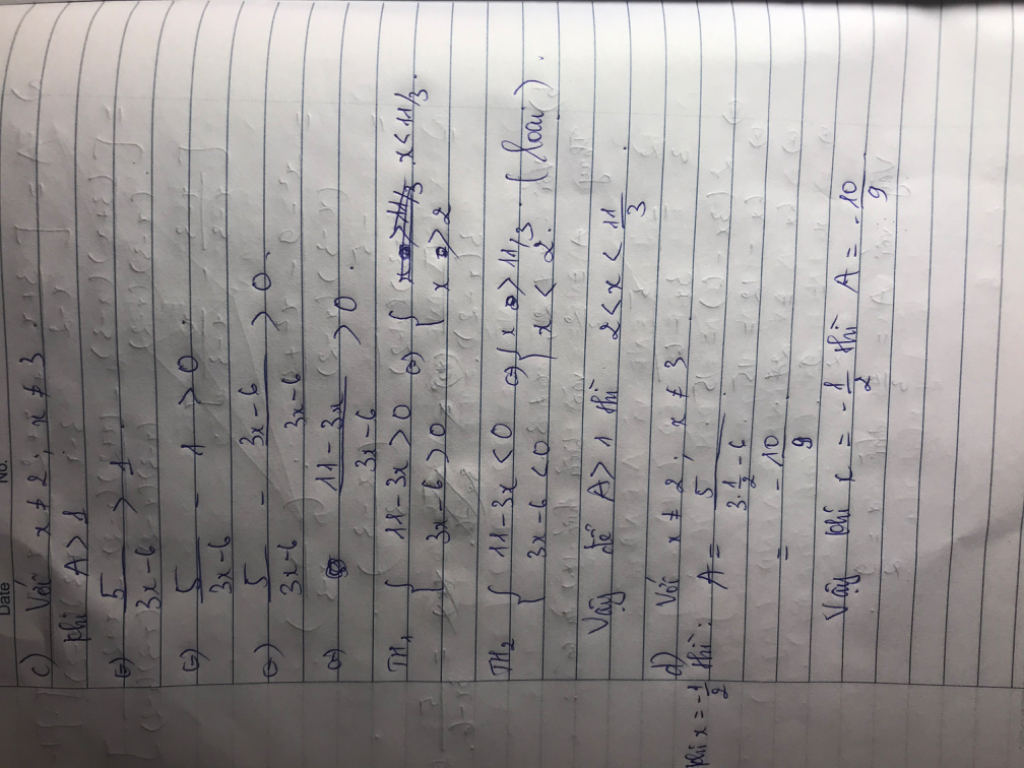 Date No.
c) Với x ≠ 2; x ≠ 3
khi A > 1
⇔ 5/(3x-6) > 1
⇔ 5/(3x-6) - 1 > 0
⇔ 5/(3x-6) - (3x-6)/(3x-6) > 0
⇔ (11-3x)/(3x-6) > 0
TH1 { 11-3x > 0 ⇔ { x < 11/3
3x-6 > 0 x > 2
TH2 { 11-3x < 0 ⇔ { x > 11/3 (loại)
3x-6 < 0 x < 2
Vậy để A > 1 thì 2 < x < 11/3
d) Với x ≠ 2; x ≠ 3
khi x = -1/2 thì: A = 5/(3.1/2-6)
= -10/9
Vậy khi x = -1/2 thì A = -10/9